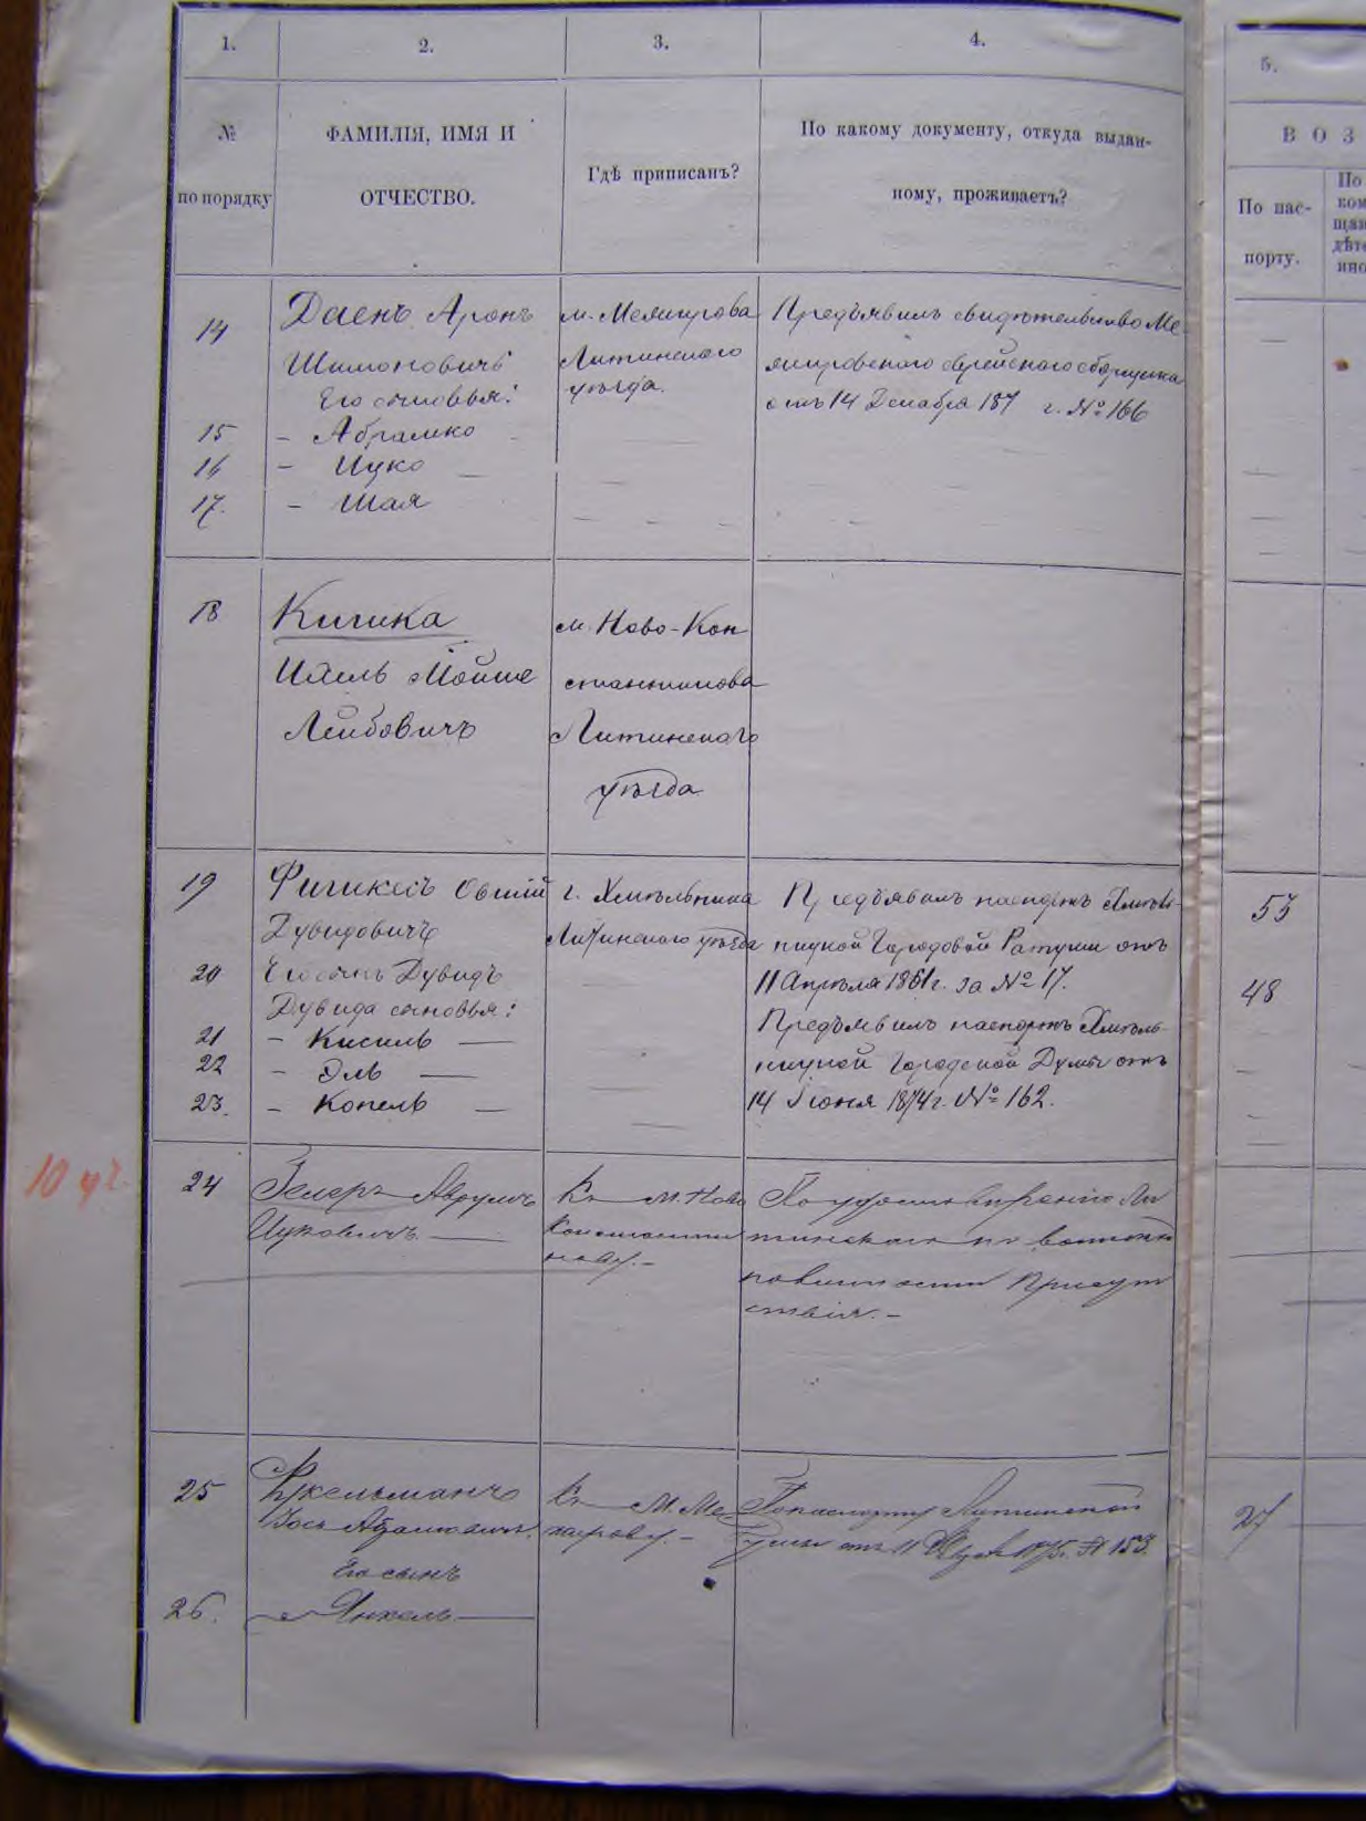 1. 2. 3. 4. 5.
№ по порядку
ФАМИЛІЯ, ИМЯ И
ОТЧЕСТВО.
Гдѣ приписанъ?
По какому документу, откуда выдан-
ному, проживаетъ?
ВОЗ
По пас-
порту.
По
ком
щан
дѣте
ино
14 Даенъ Аронъ
Шимоновичъ
Его сыновья:
м. Межирова
Литинскаго
уѣзда.
Предъявилъ свидѣтельство Ме
жировскаго еврейскаго сборщика
отъ 14 Декабря 187 г. № 166
15 – Абрамко
16 – Ицко
17. – Шая
18 Кишка
Ихиль Мойше
Лейбовичъ
м. Ново-Кон
стантинова
Литинскаго
уѣзда
19 Фишкесъ Овшій
Дувидовичъ
г. Хмѣльника
Литинскаго уѣзда
Предъявилъ паспортъ Хмѣль-
ницкой Городовой Ратуши отъ
11 Апрѣля 1861 г. за № 17.
53
20 Его сынъ Дувидъ
Дувида сыновья:
Предъявилъ паспортъ Хмѣль-
ницкой Городской Думы отъ
14 Іюня 1874 г. № 162.
48
21 – Кисиль —
22 – Эль —
23. – Копель —
10 уч.
24 Гелеръ Аврумъ
Ицковичъ —
Къ м. Ново
Константи
нову. –
По удостовѣренію Ли
тинскаго по воинской
повинности Присут
ствія. –
25 Фукельманъ
Іось Абрамовичъ.
Его сынъ
Къ м. Ме
жирову. –
По паспорту Литинской
Думы отъ 11 1875 г. № 153.
27
26. Янкель —